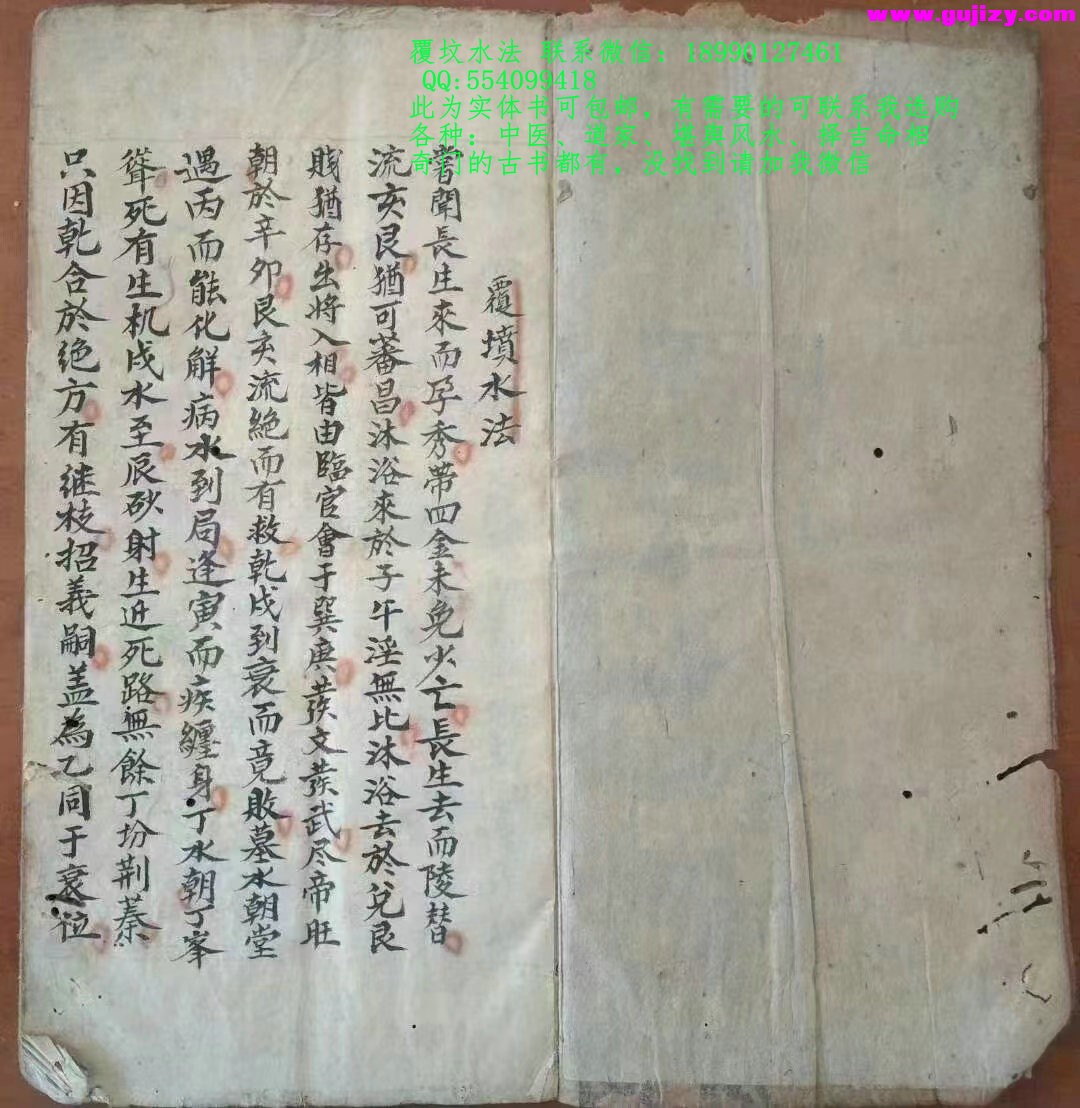 www.gujizy.com
覆坟水法 联系微信：18990127461
QQ:554099418
此为实体书可包邮，有需要的可联系我选购
各种：中医、道家、堪舆风水、择吉命相
奇门的古书都有，没找到请加我微信
覆墳水法
嘗聞長生來而孕秀帶四金未免少亡長生去而陵替
流亥艮猶可蕃昌沐浴來於子午淫無比沐浴去於兌艮
賤猶存出將入相皆由臨官會于巽庚發文發武尽帝旺
朝於辛卯艮亥流絶而有救乾戌到衰而竟敗墓水朝堂
遇丙而能化解病水到局逢寅而疾纏身丁水朝丁峯
聳死有生机戌水至辰砂射生近死路無餘丁坋荆蓁
只因乾合於绝方有继枝招義嗣盖為乙同于衰位